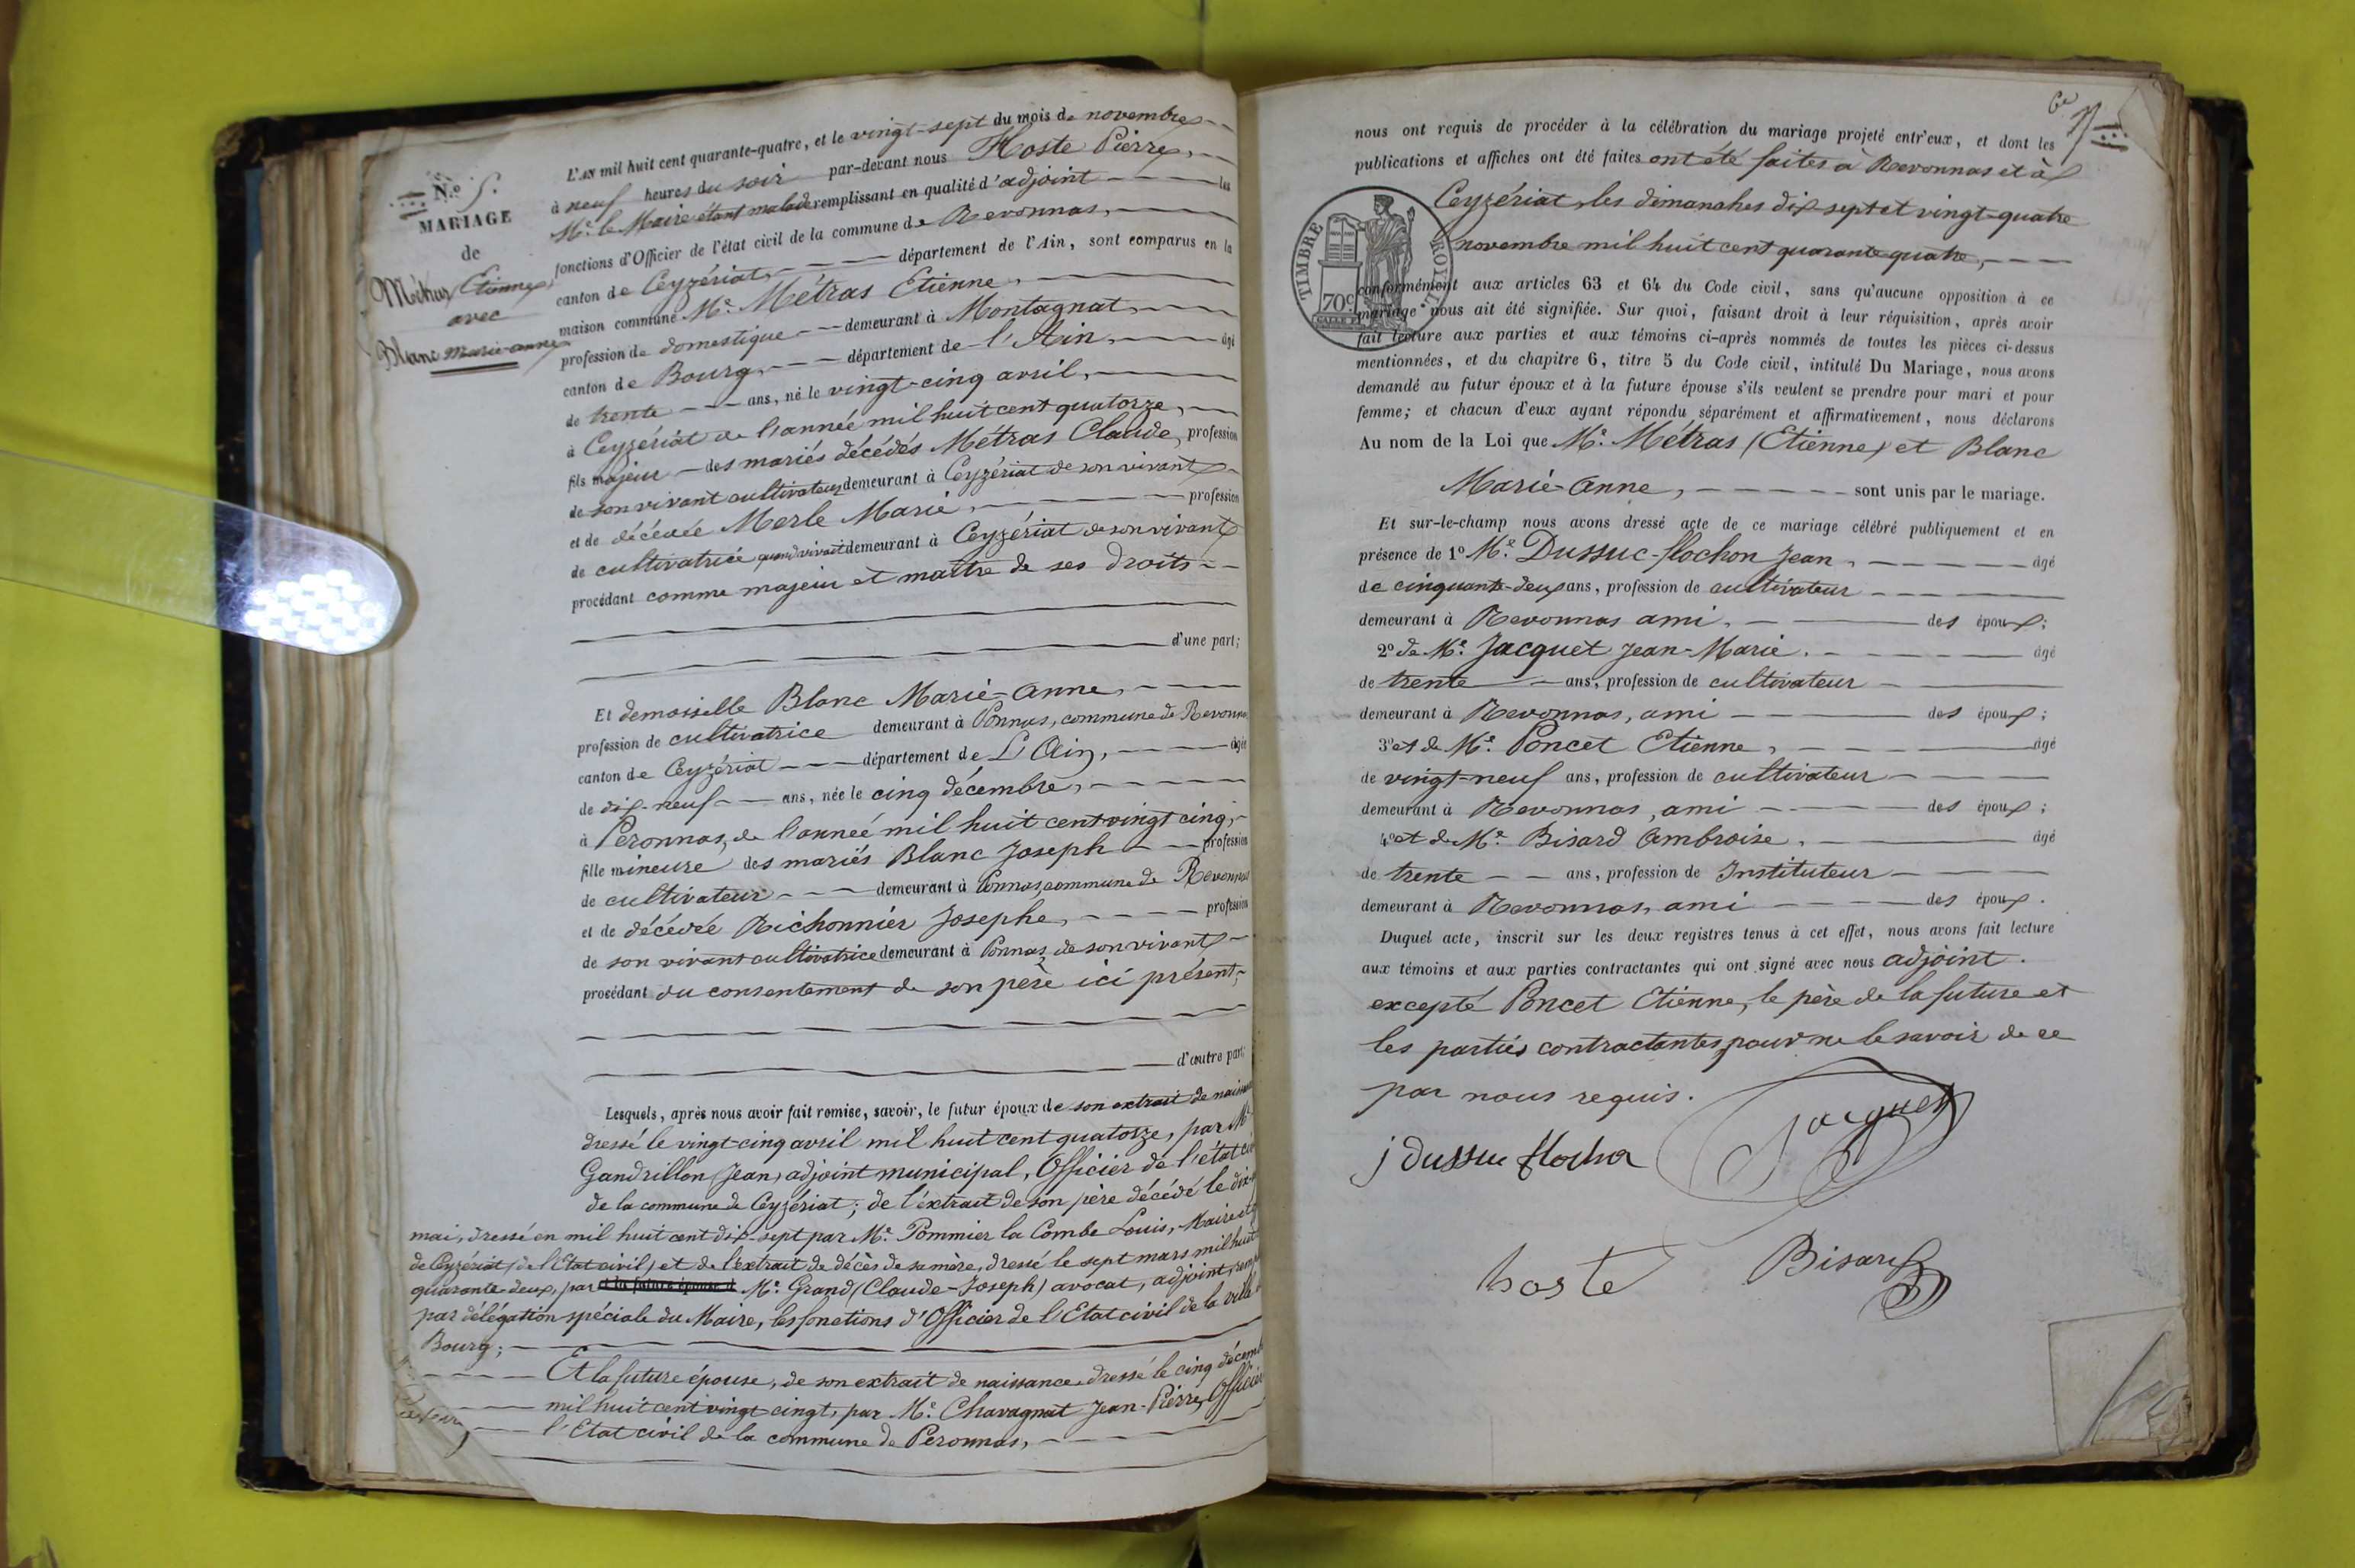 N.o 5.
MARIAGE
de
Métras Etienne,
avec
Blanc Marie-anne
L'AN mil huit cent quarante-quatre, et le vingt-sept du mois de novembre
à neuf heures du soir par-devant nous Hoste Pierre,
Mr. le Maire étant malade remplissant en qualité d'adjoint les
fonctions d'Officier de l'état civil de la commune de Revonnas,
canton de Ceyzériat, département de l'Ain, sont comparus en la
maison commune Mr. Métras Etienne,
profession de domestique demeurant à Montagnat,
canton de Bourg, département de l'Ain, âgé
de trente ans, né le vingt-cinq avril,
à Ceyzériat de l'année mil huit cent quatorze,
fils majeur des mariés décédés Métras Claude, profession
de son vivant cultivateur demeurant à Ceyzériat de son vivant
et de décédée Merle Marie, profession
de cultivatrice quand vivait demeurant à Ceyzériat de son vivant
procédant comme majeur et maître de ses droits
d'une part;
Et demoiselle Blanc Marie-anne,
profession de cultivatrice demeurant à Ponnas, commune de Revonnas
canton de Ceyzériat département de L'Ain, âgée
de dix-neuf ans, née le cinq décembre,
à Péronnas, de l'année mil huit cent vingt cinq,
fille mineure des mariés Blanc Joseph profession
de cultivateur demeurant à Ponnas, commune de Revonnas
et de décédée Richonnier Josephe, profession
de son vivant cultivatrice demeurant à Ponnas, de son vivant
procédant du consentement de son père ici présent,
d'autre part
Lesquels, après nous avoir fait remise, savoir, le futur époux de son extrait de
dressé le vingt-cinq avril mil huit cent quatorze, par Mr.
Gandrillon (Jean) adjoint municipal, Officier de l'état
de la commune de Ceyzériat; de l'extrait de son père décédé le
mai, dressé en mil huit cent dix-sept par Mr. Pommier la Combe Louis, Maire
de Ceyzériat (de l'Etat civil) et de l'extrait de décès de sa mère, dressé le sept mars mil huit
quarante-deux, par et la future épouse d Mr. Grand (Claude-Joseph) avocat, adjoint,
par délégation spéciale du Maire, les fonctions d'Officier de l'Etat civil de la ville
Bourg;
Et la future épouse, de son extrait de naissance dressé le cinq
mil huit cent vingt cinq, par Mr. Chavagnat Jean-Pierre, Officier
l'Etat civil de la commune de Péronnas,
nous ont requis de procéder à la célébration du mariage projeté entr'eux, et dont les
publications et affiches ont été faites ont été faites à Revonnas et à
Ceyzériat, les dimanches dix sept et vingt-quatre
novembre mil huit cent quarante-quatre,
TIMBRE ROYAL
70c
conformément aux articles 63 et 64 du Code civil, sans qu'aucune opposition à ce
mariage nous ait été signifiée. Sur quoi, faisant droit à leur réquisition, après avoir
fait lecture aux parties et aux témoins ci-après nommés de toutes les pièces ci-dessus
mentionnées, et du chapitre 6, titre 5 du Code civil, intitulé Du Mariage, nous avons
demandé au futur époux et à la future épouse s'ils veulent se prendre pour mari et pour
femme; et chacun d'eux ayant répondu séparément et affirmativement, nous déclarons
Au nom de la Loi que Mr. Métras (Etienne) et Blanc
Marie-Anne, sont unis par le mariage.
Et sur-le-champ nous avons dressé acte de ce mariage célébré publiquement et en
présence de 1o Mr. Dussuc-flochon Jean, âgé
de cinquante-deux ans, profession de cultivateur
demeurant à Revonnas ami, des époux;
2o de Mr. Jacquet Jean-Marie, âgé
de trente ans, profession de cultivateur
demeurant à Revonnas, ami des époux;
3o et de Mr. Poncet Etienne, âgé
de vingt-neuf ans, profession de cultivateur
demeurant à Revonnas, ami des époux;
4o et de Mr. Bisard Ambroise, âgé
de trente ans, profession de Instituteur
demeurant à Revonnas, ami des époux.
Duquel acte, inscrit sur les deux registres tenus à cet effet, nous avons fait lecture
aux témoins et aux parties contractantes qui ont signé avec nous adjoint.
excepté Poncet Etienne, le père de la future et
les parties contractantes pour ne le savoir de ce
par nous requis.
Jacquet
j Dussuc flochon
hoste
Bisard